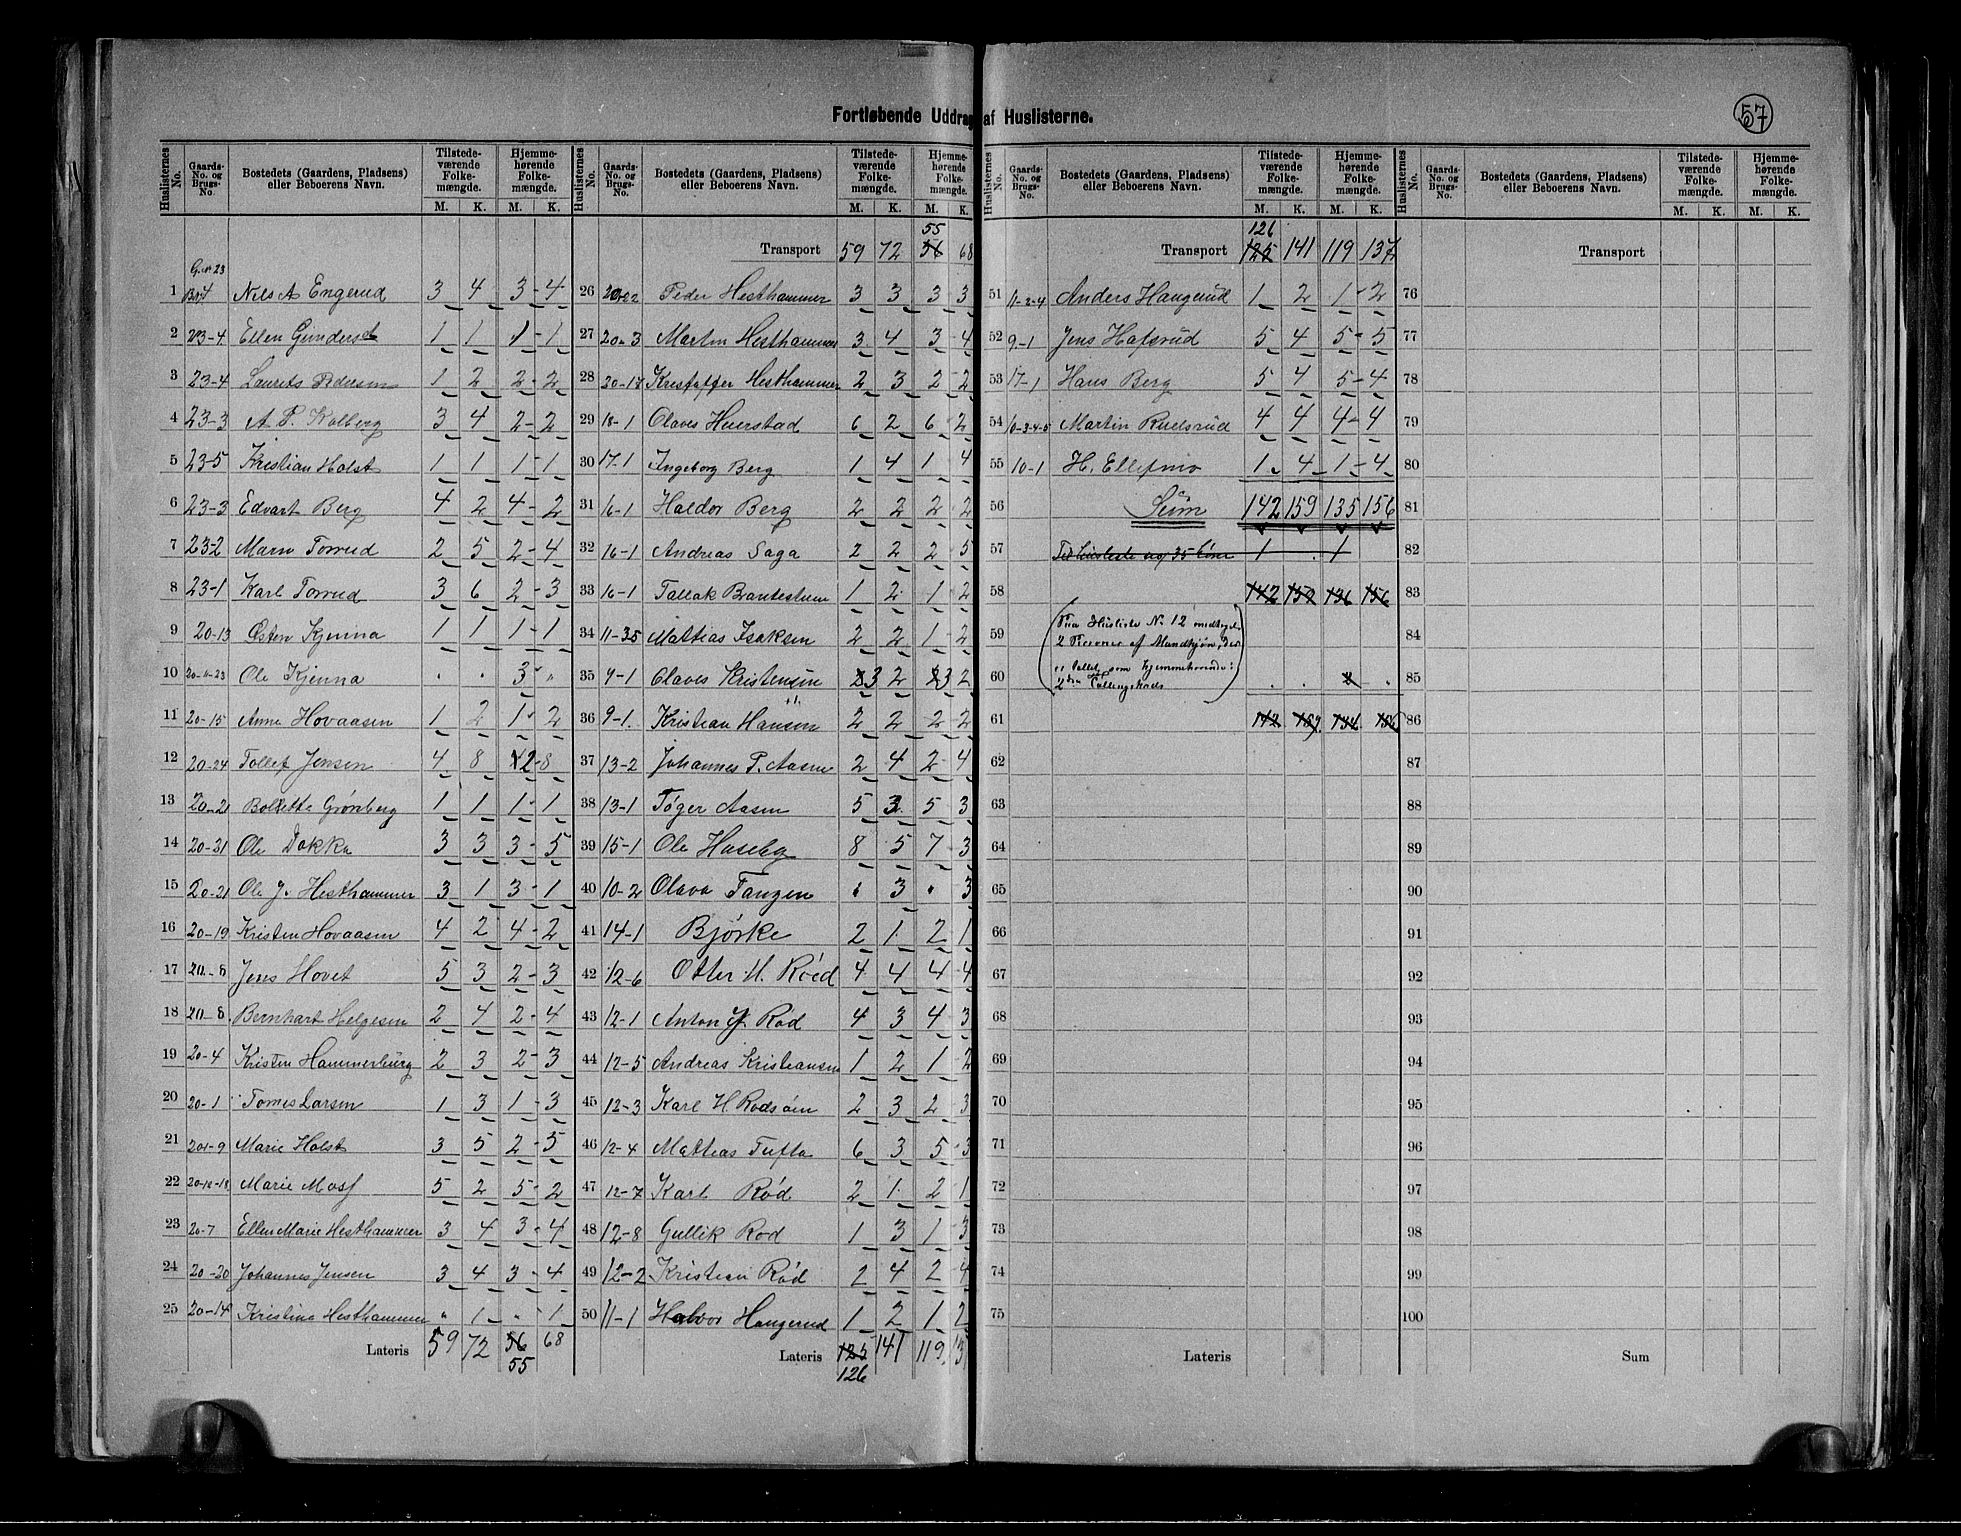 Fortløbende Uddrag af Huslisterne.
57
Huslisternes No. Gaards-No. og Brugs-No. Bostedets (Gaardens, Pladsens) eller Beboerens Navn. Tilstedeværende Folkemængde. Hjemmehørende Folkemængde.
M. K. M. K.
G. nr 23
1 Nils A Engerud 3 4 3-4
2 23-4 Ellen 1 1 1-1
3 23-4 Laurits Pedersen 1 2 2-2
4 23-3 A P. Kolberg 3 4 2-2
5 23-5 Kristian Holst 1 1 1-1
6 23-3 Edvart Berg 4 2 4-2
7 23-2 Maru Torrud 2 5 2-4
8 23-1 Karl Torrud 3 6 2-3
9 20-13 Østen Kjenna 1 1 1-1
10 20-11-23 Ole Kjenna . . 3 "
11 20-15 Anne Hovaasen 1 2 1-2
12 20-24 Tollef Jensen 4 8 2-8
13 20-21 Bolette Grønberg 1 1 1-1
14 20-31 Ole Dokka 3 3 3-5
15 20-21 Ole J. Hesthammer 3 1 3-1
16 20-19 Kristen Hovaasen 4 2 4-2
17 20-8 Jens Hovet 5 3 2-3
18 20-8. Bernhart Helgesen 2 4 2-4
19 20-4 Kristen Hammerburg 2 3 2-3
20 20-1 Tomes Larsen 1 3 1-3
21 20-9 Marie Holst 3 5 2-5
22 20-12-18 Marie Moss 5 2 5-2
23 20-7 Ellen Marie Hesthammer 3 4 3-4
24 20-30 Johannes Jensen 3 4 3-4
25 20-14 Kristine Hesthammer " 1 " 1
Lateris 59 72 56 68
55
Huslisternes No. Gaards-No. og Brugs-No. Bostedets (Gaardens, Pladsens) eller Beboerens Navn. Tilstedeværende Folkemængde. Hjemmehørende Folkemængde.
M. K. M. K.
55
Transport 59 72 56 68
26 Peder Hesthammer 3 3 3 3
27 20-3 Martin Hesthammer 3 4 3-4
28 20-17 Kristoffer Hesthammer 2 3 2-2
29 18-1 Olaves Huerstad 6 2 6 2
30 17-1 Ingeborg Berg 1 4 1 4
31 16-1 Haldor Berg 2 2 2 2
32 16-1 Andreas Saga 2 2 2 5
33 16-1 Tallak 1 2 1 2
34 11-35 Mattias Isaksen 2 2 1-2
35 9-1 Olaves Kristensen 3 2 3 2
36 9-1. Kristian Hansen 2 2 2-2
37 13-2 Johannes P. Aasen 2 4 2-4
38 13-1 Tøger Aasen 5 3 5 3
39 15-1 Ole Haseby 8 5 7-3
40 10-2 Olava Tangen . 3 . 3
41 14-1 Bjørke 2 1 2 1
42 12-6 Otter H. Röed 4 4 4-4
43 12-1 Anton J Rød 4 3 4 3
44 12-5 Andreas Kristiansen 1 2 1 2
45 12-3 Karl H Rødsøen 2 3 2 3
46 12-4 Mattias Tufta 6 3 5-3
47 12-7 Karl Rød 2 1 2 1
48 12-8 Gullik Rød 1 3 1 3
49 12-2 Kristian Rød 2 4 2 4
50 11-1 Halvor Haugerud 1 2 1 2
Lateris 125 141 119. 13
126
Huslisternes No. Gaards-No. og Brugs-No. Bostedets (Gaardens, Pladsens) eller Beboerens Navn. Tilstedeværende Folkemængde. Hjemmehørende Folkemængde.
M. K. M. K.
126
Transport 125 141 119 137
51 11-2-4 Anders Haugerud 1 2 1-2
52 9-1 Jens Hafsrud 5 4 5-5
53 17-1 Hans Berg 5 4 5-4
54 10-3-4-5 Martin Rudsrud 4 4 4-4
55 10-1 H. Ellefmo 1 4 1-4
56 Sum 142 159 135 156
57 Til Husliste no 35 1 1
58 142 159 136 156
59 (Fra Husliste No. 12 medtages
2 Personer af Mandkjøn,
60 som hjemmehørende: 2
61 142. 159. 134. 156
62
63
64
65
66
67
68
69
70
71
72
73
74
75
Lateris
Huslisternes No. Gaards-No. og Brugs-No. Bostedets (Gaardens, Pladsens) eller Beboerens Navn. Tilstedeværende Folkemængde. Hjemmehørende Folkemængde.
M. K. M. K.
Transport
76
77
78
79
80
81
82
83
84
85
86
87
88
89
90
91
92
93
94
95
96
97
98
99
100
Sum